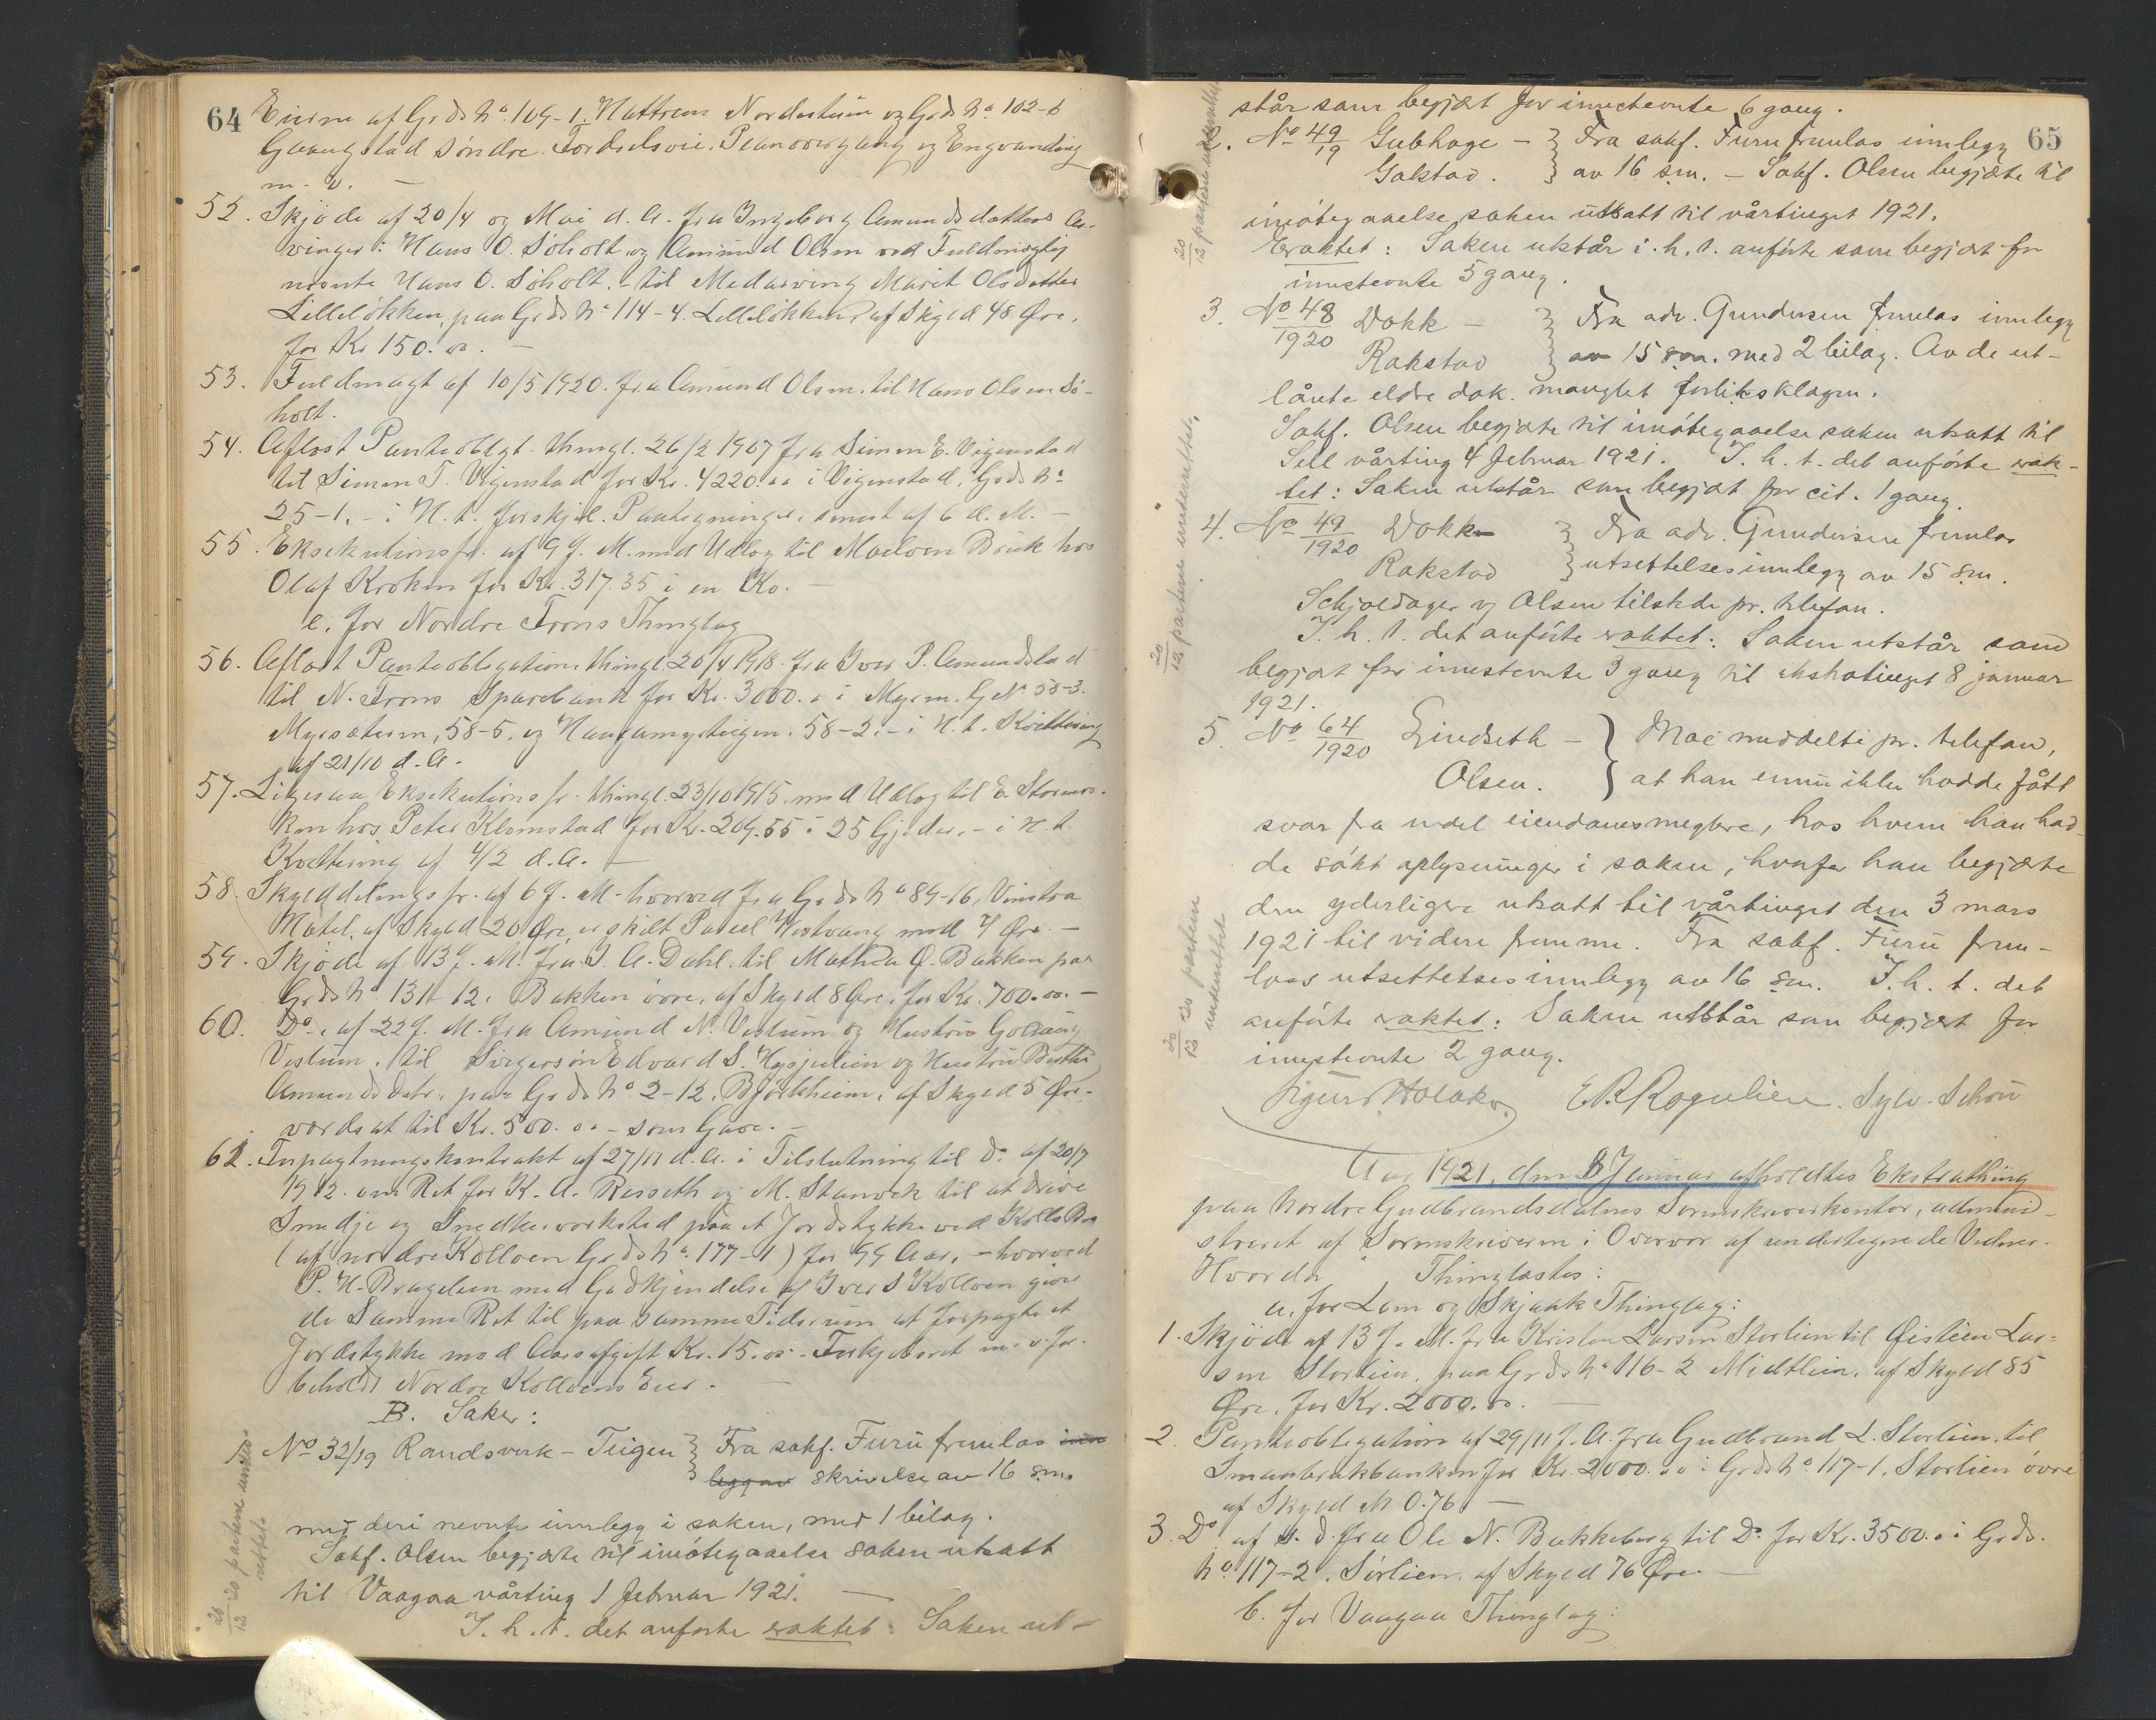 64
Eierne af Grds No 109-1. Hattrem Nordistuen og Grds No 102-6
Graugstad søndre. Fordelsvei, Planovergang og Engvanding
m. v. —
52. Skjøde af 20/4 og Mai d. A. fra Ingeborg Amundsdatters Ar-
vinger: Hans O. Søholt og Amund Olsen ved Fuldmægtig
nævnte Hans O. Søholt. - til Medarving Marit Olsdatter
Lilleløkken, paa Grds No 114-4. Lilleløkken, af Skyld 48 Øre.
for Kr 150. 00. —
53. Fuldmagt af 10/5 1920. fra Amund Olsen. til Hans Olsen Sø-
holt.
54. Aflæst Panteobligt. thingl. 26/2 1907 fra Simen E. Vigenstad
til Simen T. Vigenstad for Kr. 4220.00 i Vigenstad, Grds No
25-1. - i H. t. forskjel. Paategninger, senest af 6 d. M. —
55. Eksekutionsfr. af 9 f. M. med Udlæg til Moelven Bruk hos
Olaf Kroken for Kr. 317.35 i en Ko. —
e. for Nordre Frons Thinglag
56. Aflæst Panteobligation thingl. 20/4 1918. fra Iver P. Amundstad
til N. Frons Sparebank for Kr. 3000.00 i Myrsm. G. No. 58-3.
Myrsæteren, 58-5. og Haugamyrteigen. 58-2. - i H. t. Kvittering
af 21/10 d. A.
57. Ligesaa Eksekutionsfr. thingl. 23/10 1915. med Udlæg til E. Stormor-
ken hos Peter Klomstad for Kr. 209.55 i 25 Gjeder. - i H. t.
Kvittering af 4/2 d. A. —
58. Skylddelingsfr. af 6 f. M. hvorved fra Grds No 84-16, Vinstra
Hotel, af Skyld 20 Øre, er skilt Parcel Vestvang med 7 Øre. —
59. Skjøde af 13 f. M. fra J. A. Dahl. til Mathea O. Bakken paa
Grds No 131-12. Bakken øvre, af Skyld 8 Øre. for Kr. 700.00. —
60. Do. af 22 f. M. fra Amund N. Vistuen og Hustru
Vistuen. til Svigersøn Edvard S. og Hustru
Amundsdatr. paa Grds No 2-12. Bjørkheim. af Skyld 5 Øre.
værdsat til Kr. 500.00 - som Gave. —
61. Forpagtningskontrakt af 27/11 d. A. i Tilslutning til Do af 20/7
1912. om Ret for K. A. Risseth og M. Stanvik til at drive
Smedje og Snedkerværksted paa et Jordstykke ved Kolls Bro
(af nordre Kolloen Grds No. 177-1) for 99 Aar, - hvorved
P. H. Bragelien med Godkjendelse af Iver S Kolloen giver
de Samme Ret til paa samme Tidsrum at forpagte et
Jordstykke mod Aarsafgift Kr. 15.00. - Forkjøbsret m. v. for-
beholdt Nordre Kolloens Eier. —
B. Saker:
1. No 32/19 Randsverk - Teigen } Fra sakf. Furu fremlas inn
leggav skrivelse av 16 sm.
med deri nevnte innlegg i saken, med 1 bilag.
Sakf. Olsen begjærte til imøtegaaelse saken utsatt
til Vaagaa vårting 1 februar 1921. —
I. h. t. det anførte vaktet: Saken ut-
20/12 20 partene under-
rettet.
65
står som begjæt for innstevnte 6 gang.
2. No 49/19 Gubhage - } Fra sakf. Furu fremlas innlegg
Gakstad. } av 16 sm. - Sakf. Olsen begjærte til
imøtegaaelse saken utsatt til vårtinget 1921.
vaktet: Saken utstår i. h. t. anførte som begjæt for
innstevnte 5 gang.
3. No 48/1920 Vokk - } Fra adv. Gundersen fremlas innlegg
Rakstad } av 15 sm. med 2 bilag. Av de ut-
lånte eldre dok. manglet forliksklagen.
Sakf. Olsen begjærte til imøtegaaelse saken utsatt til
Sell vårting 4 februar 1921. I. h. t. det anførte vak-
tet: Saken utstår som begjæt for cit. 1 gang.
4. No 49/1920 Vokk - } Fra adv. Gundersen fremlas
Rakstad } utsettelsesinnlegg av 15 sm.
Schjoldager og Olsen tilstede pr. telefon.
I. h. t. det anførte vaktet: Saken utstår som
begjæt for innstevnte 3 gang til ekstratinget 8 januar
1921.
5. No 64/1920 Lindseth - } Moe meddelte pr. telefon,
Olsen. } at han ennu ikke hadde fått
svar fra endel eiendomsmeglere, hos hvem han had-
de søkt oplysninger i saken, hvorfor han begjærte
den yderligere utsatt til vårtinget den 3 mars
1921 til videre fremme. Fra sakf. Furu frem-
laas utsettelsesinnlegg av 16 sm. I. h. t. det
anførte vaktet: Saken utstår som begjært for
innstevnte 2 gang.
Sigurd Holaker E R Rogulien. Sylv. Schou
20/12 partene underrettet
20/12 partene underrettet.
20/12 20 partene
underrettet
Aar 1921. den 8 Januar afholdtes Ekstrathing
paa Nordre Gudbrandsdalens Sorenskriverkontor, admini-
streret af Sorenskriveren i Overvær af undertegnede Vidner.
Hvorda Thinglæstes:
a. for Lom og Skjaak Thinglag:
1. Skjøde af 13 f. M. fra Kristen Larsen Storlien til Øistein Lar-
sen Storlien. paa Grds No 116-2 Midtlien. af Skyld 85
Øre. for Kr. 2000.00. —
2. Panteobligation af 29/11 f. A. fra Gudbrand L. Storlien. til
Smaabrukbanken for Kr. 2000.00 i Grds No. 117-1. Storlien øvre
af Skyld M 0.76. —
3. Do af s. d. fra Ole N. Bakkeberg til Do. for Kr. 3500.00 i Grds.
No. 117-2. Sørlien, af Skyld 76 Øre. —
b. for Vaagaa Thinglag: